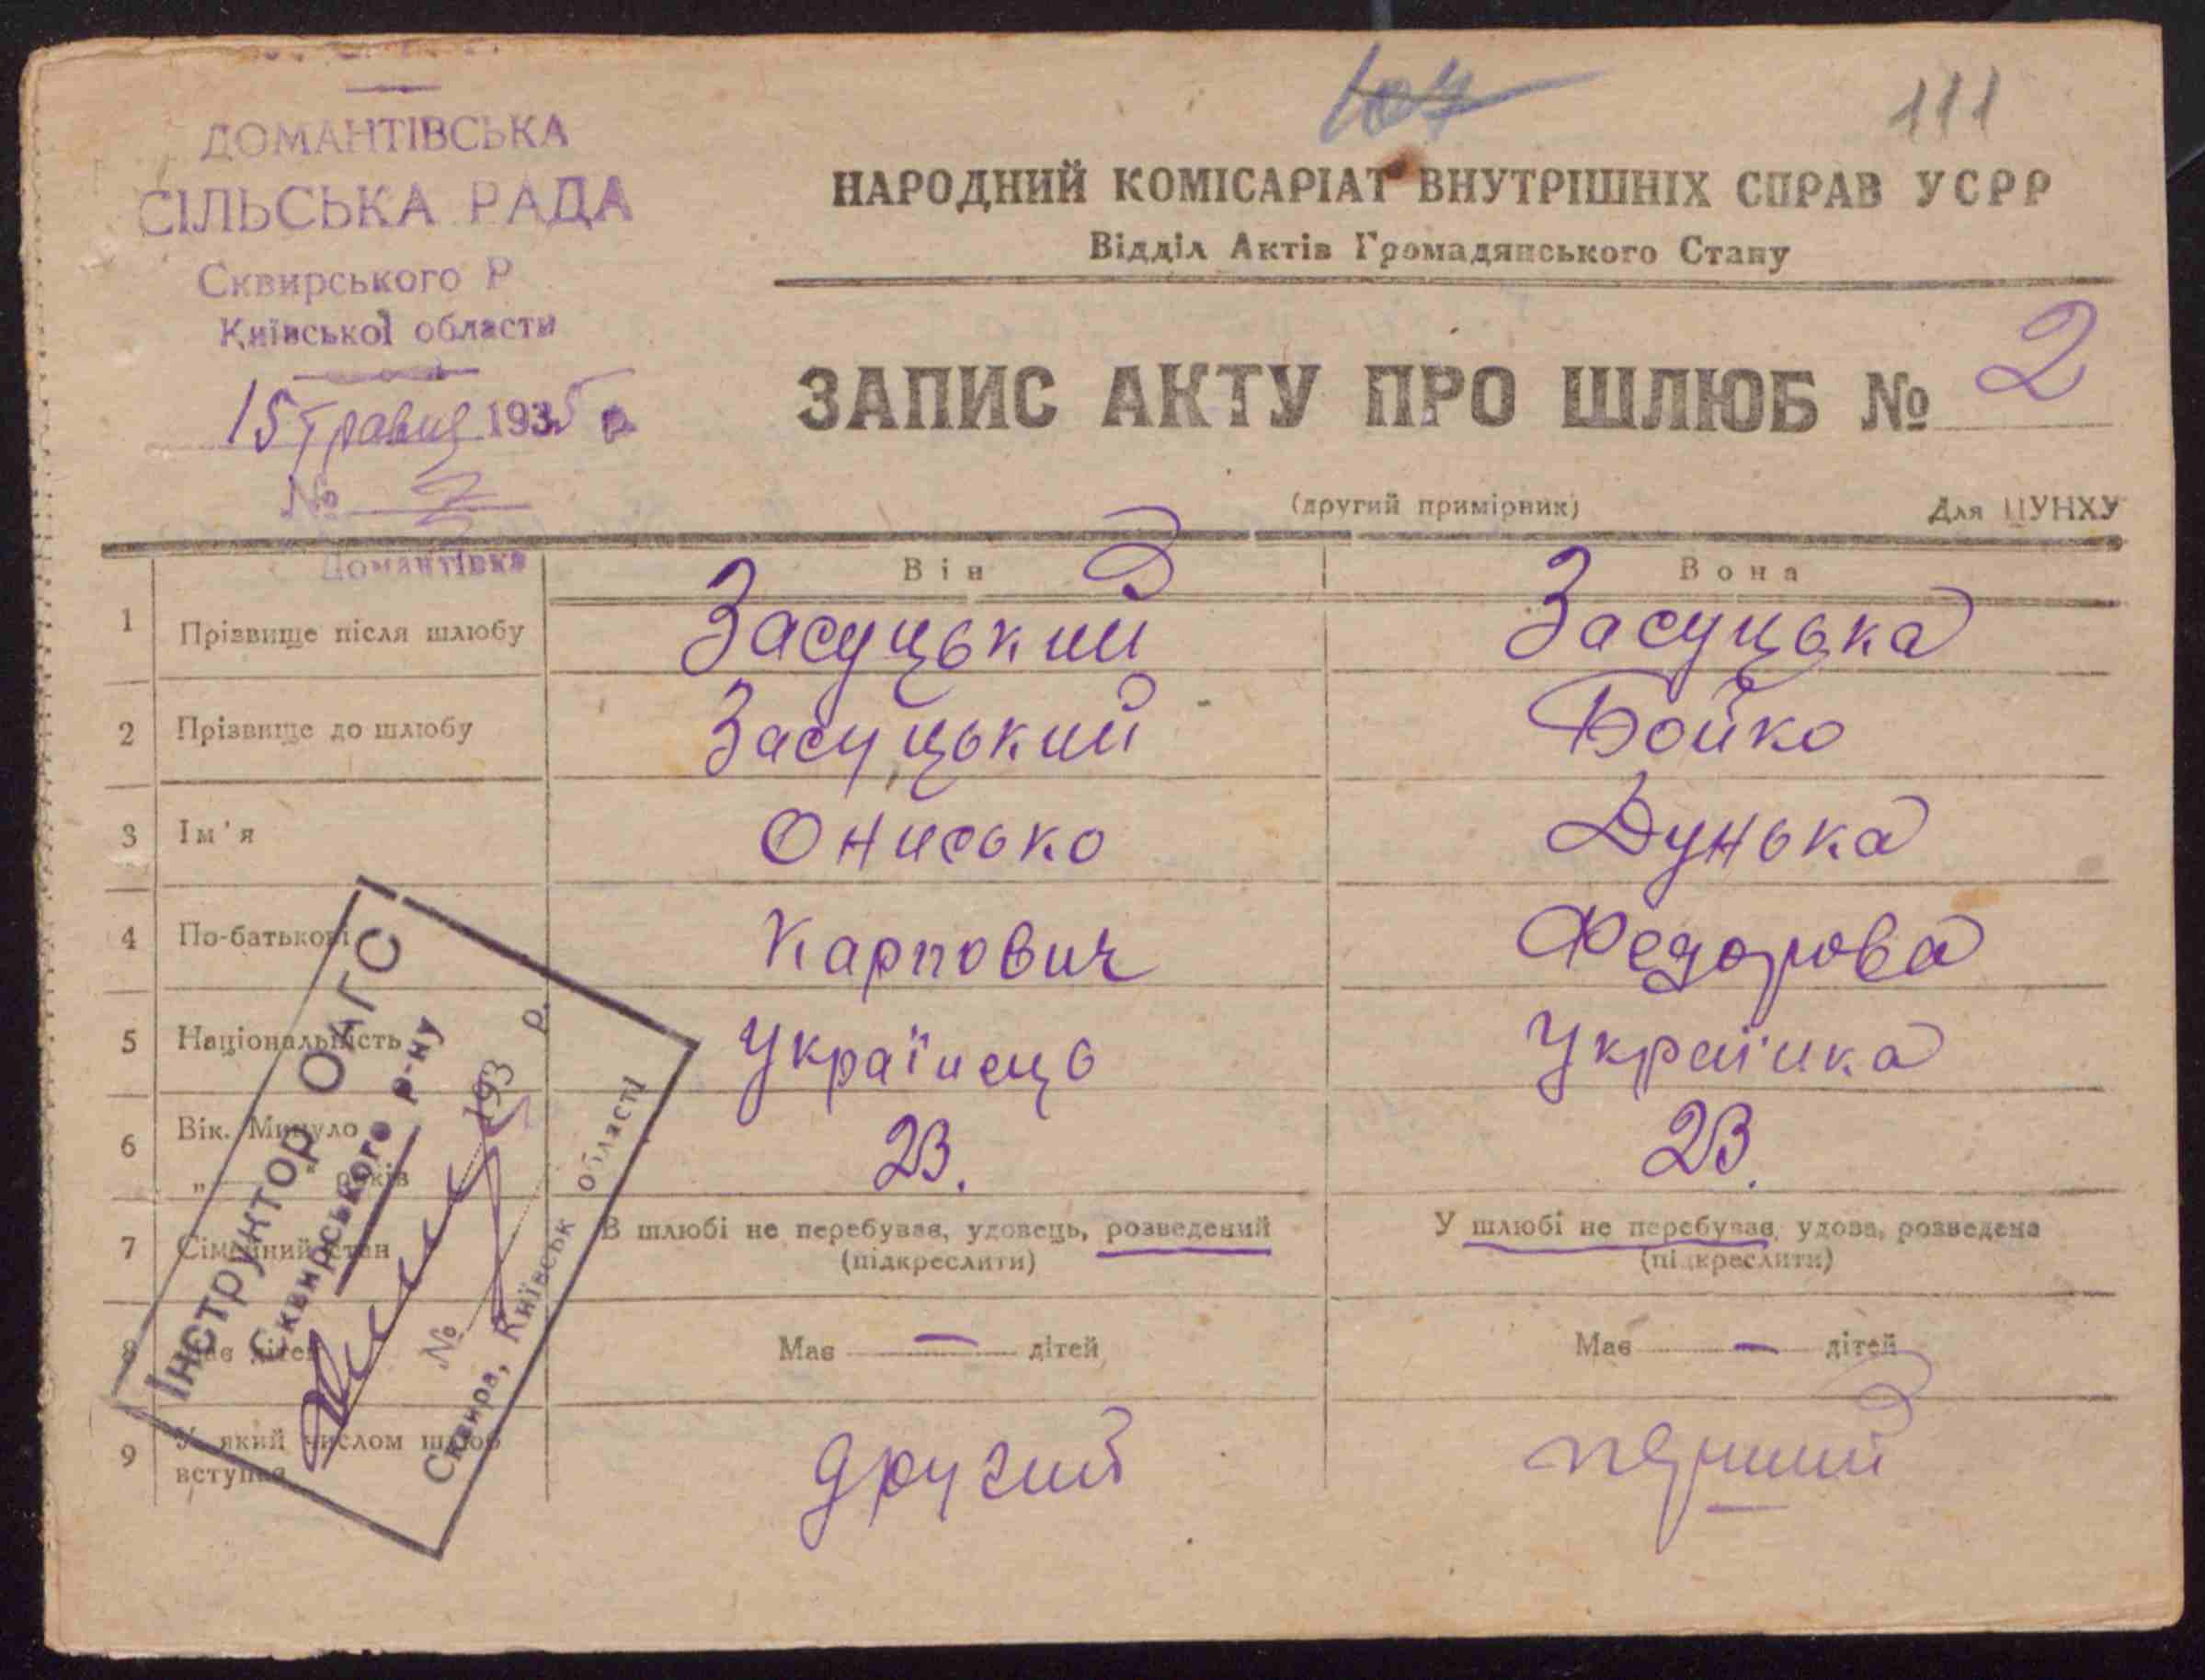 107
111
ДОМАНТІВСЬКА
СІЛЬСЬКА РАДА
Сквирського Р
Київської области
15 Травня 1935 р.
№ 2
Домантівка
НАРОДНИЙ КОМІСАРІАТ ВНУТРІШНІХ СПРАВ УСРР
Відділ Актів Громадянського Стану
ЗАПИС АКТУ ПРО ШЛЮБ № 2
(другий примірник) Для ЦУНХУ
Він Вона
1 Прізвище після шлюбу Засуцький Засуцька
2 Прізвище до шлюбу Засуцький Бойко
3 Ім'я Онисько Дунька
4 По-батькові Карпович Федорова
5 Національність Українець Українка
6 Вік. Минуло 23. 23.
„ років
7 Сімейний стан В шлюбі не перебував, удовець, розведений У шлюбі не перебував, удова, розведена
(підкреслити) (підкреслити)
8 Має дітей Має — дітей Має — дітей
9 У який числом шлюб другий перший
вступив
Інструктор ОАГС
Сквирського р-ну
193 р.
№
Сквира, Київськ області